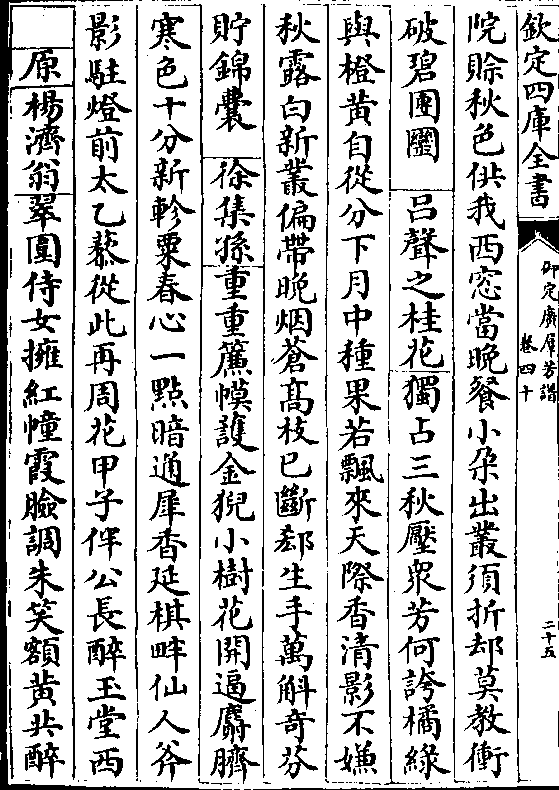 欽定四庫全書
御定廣羣芳譜
卷四十
二十五
院賒秋色供我西窓當晚餐小朶出叢須折却莫教衝
破碧團圞　吕聲之桂花獨占三秋壓衆芳何誇橘綠
與橙黄自從分下月中種果若飄來天際香清影不嫌
秋露白新叢偏帶晚烟蒼髙枝已斷郄生手萬斛奇芬
貯錦囊　徐集孫重重簾幙護金猊小樹花開逼麝臍
寒色十分新軫粟春心一點暗通犀香延棋畔仙人斧
影駐燈前太乙藜從此再周花甲子伴公長醉玉堂西
原楊濟翁翠圍侍女擁紅幢霞臉調朱笑額黄共醉